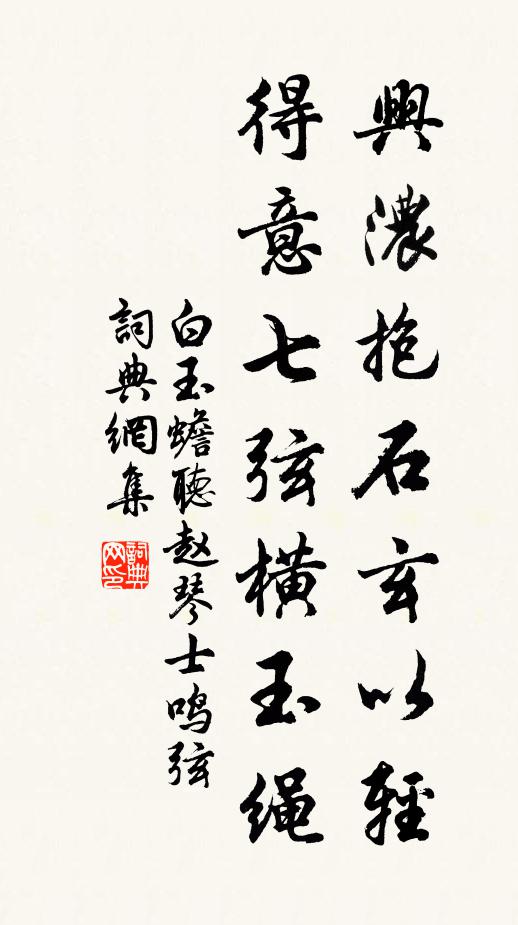 興濃抱石玄以輕
得意七弦橫玉绳
白玉蟾聽赵琴士鸣弦
詞典網集
詞典网印